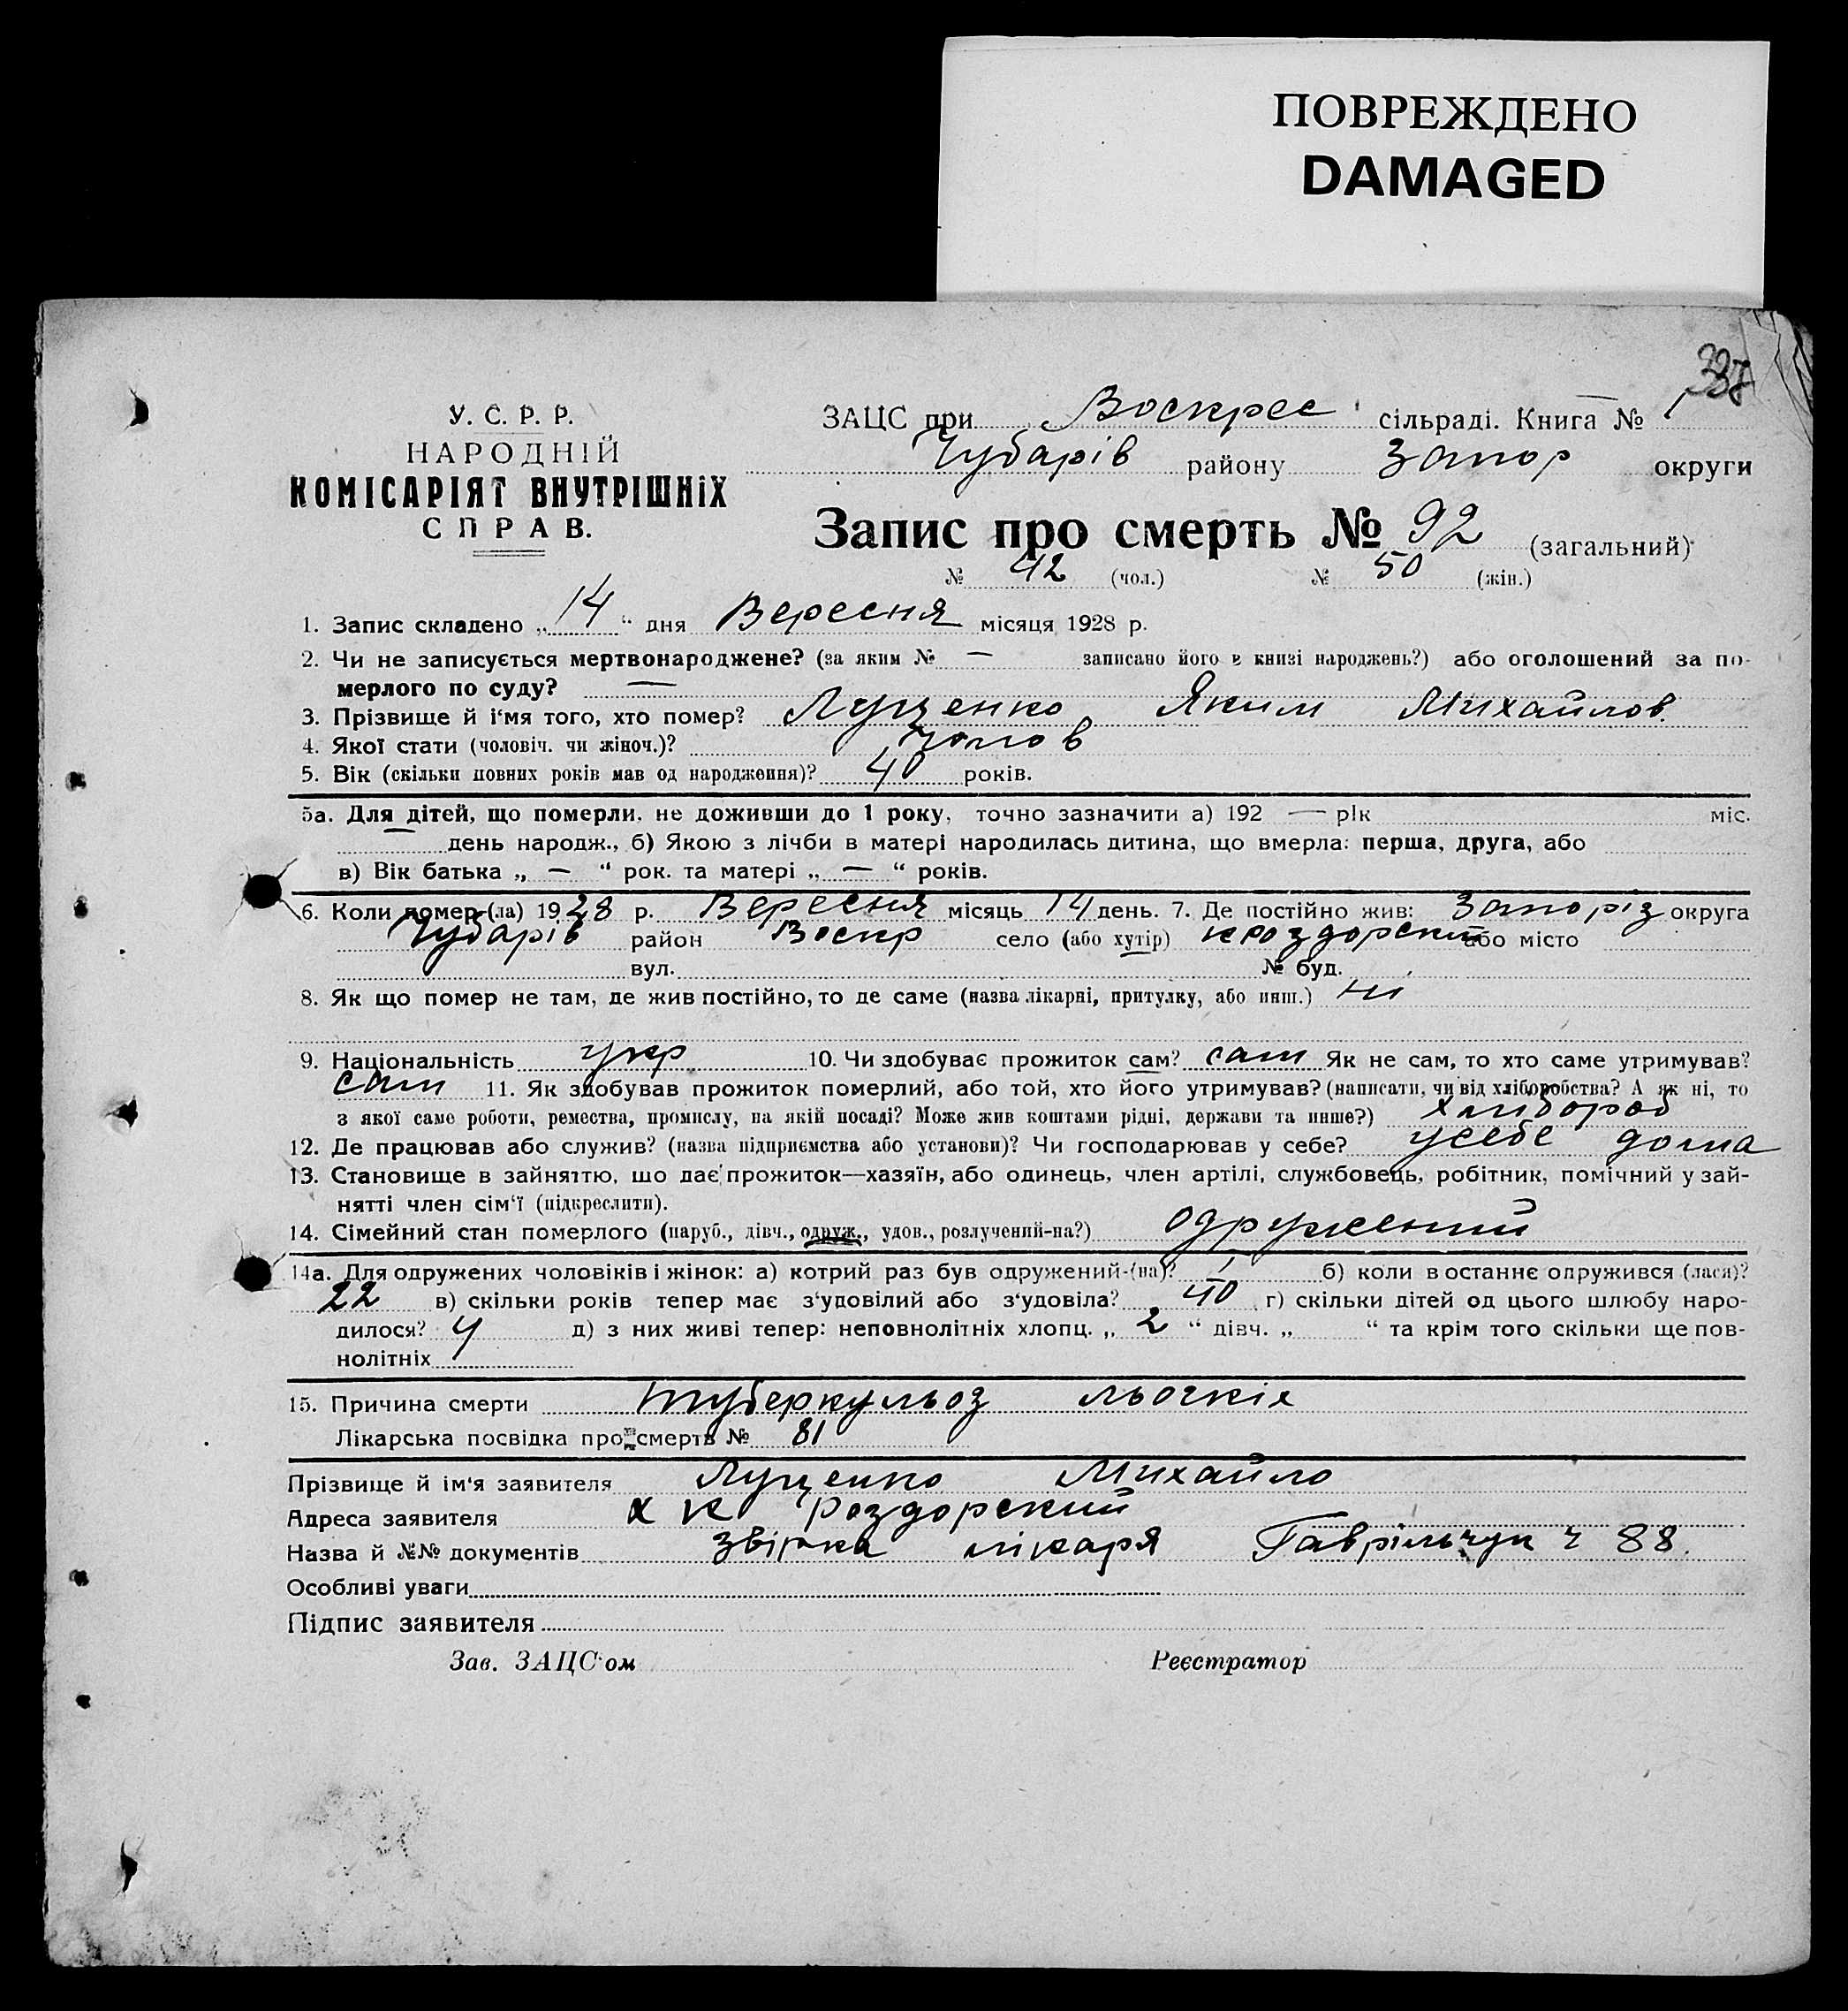 ПОВРЕЖДЕНО
DAMAGED
У. С. Р. Р.
НАРОДНІЙ
КОМІСАРІЯТ ВНУТРІШНІХ
СПРАВ.
ЗАЦС при Воскрес сільраді. Книга № 1
Чубарів району Запор округи
Запис про смерть № 92 (загальний)
№ 42 (чол.) № 50 (жін.)
1. Запис складено „14“ дня Вересня місяця 1928 р.
2. Чи не записується мертвонароджене? (за яким № — записано його в книзі народжень?) або оголошений за по-
мерлого по суду? —
3. Прізвище й і'мя того, хто помер? Луценко Яким Михайлов.
4. Якої стати (чоловіч. чи жіноч.)? чолов
5. Вік (скільки повних років мав од народження)? 40 років.
5а. Для дітей, що померли, не доживши до 1 року, точно зазначити а) 192 — рік міс.
— день народж., б) Якою з лічби в матері народилась дитина, що вмерла: перша, друга, або
в) Вік батька „ — “ рок. та матері „ — “ років.
6. Коли помер (ла) 1928 р. Вересня місяць 14 день. 7. Де постійно жив: Запоріз округа
Чубарів район Воскр село (або хутір) к роздорский або місто
вул. № буд.
8. Як що помер не там, де жив постійно, то де саме (назва лікарні, притулку, або инш.) ні
9. Національність укр 10. Чи здобуває прожиток сам? сам Як не сам, то хто саме утримував?
сам 11. Як здобував прожиток померлий, або той, хто його утримував? (написати, чи від хліборобства? А як ні, то
з якої саме роботи, ремества, промислу, на якій посаді? Може жив коштами рідні, держави та инше?) хлибороб
12. Де працював або служив? (назва підприємства або установи)? Чи господарював у себе? усебе дома
13. Становище в зайняттю, що дає прожиток—хазяїн, або одинець, член артілі, службовець, робітник, помічний у зай-
нятті член сім'ї (підкреслити).
14. Сімейний стан померлого (паруб., дівч., одруж., удов., розлучений-на?) одружений
14а. Для одружених чоловіків і жінок: а) котрий раз був одружений-(на)? 1 б) коли в останнє одружився (лася)?
22 в) скільки років тепер має з'удовілий або з'удовіла? 40 г) скільки дітей од цього шлюбу наро-
дилося? 4 д) з них живі тепер: неповнолітніх хлопц. „ 2 “ дівч. „ “ та крім того скільки ще пов-
нолітніх
15. Причина смерти туберкульоз льогкіх
Лікарська посвідка про смерть № 81
Прізвище й ім'я заявителя Луценко Михайло
Адреса заявителя х к роздорский
Назва й №№ документів звірка лікаря Гаврільчук ч 88.
Особливі уваги
Підпис заявителя
Зав. ЗАЦС'ом Реєстратор